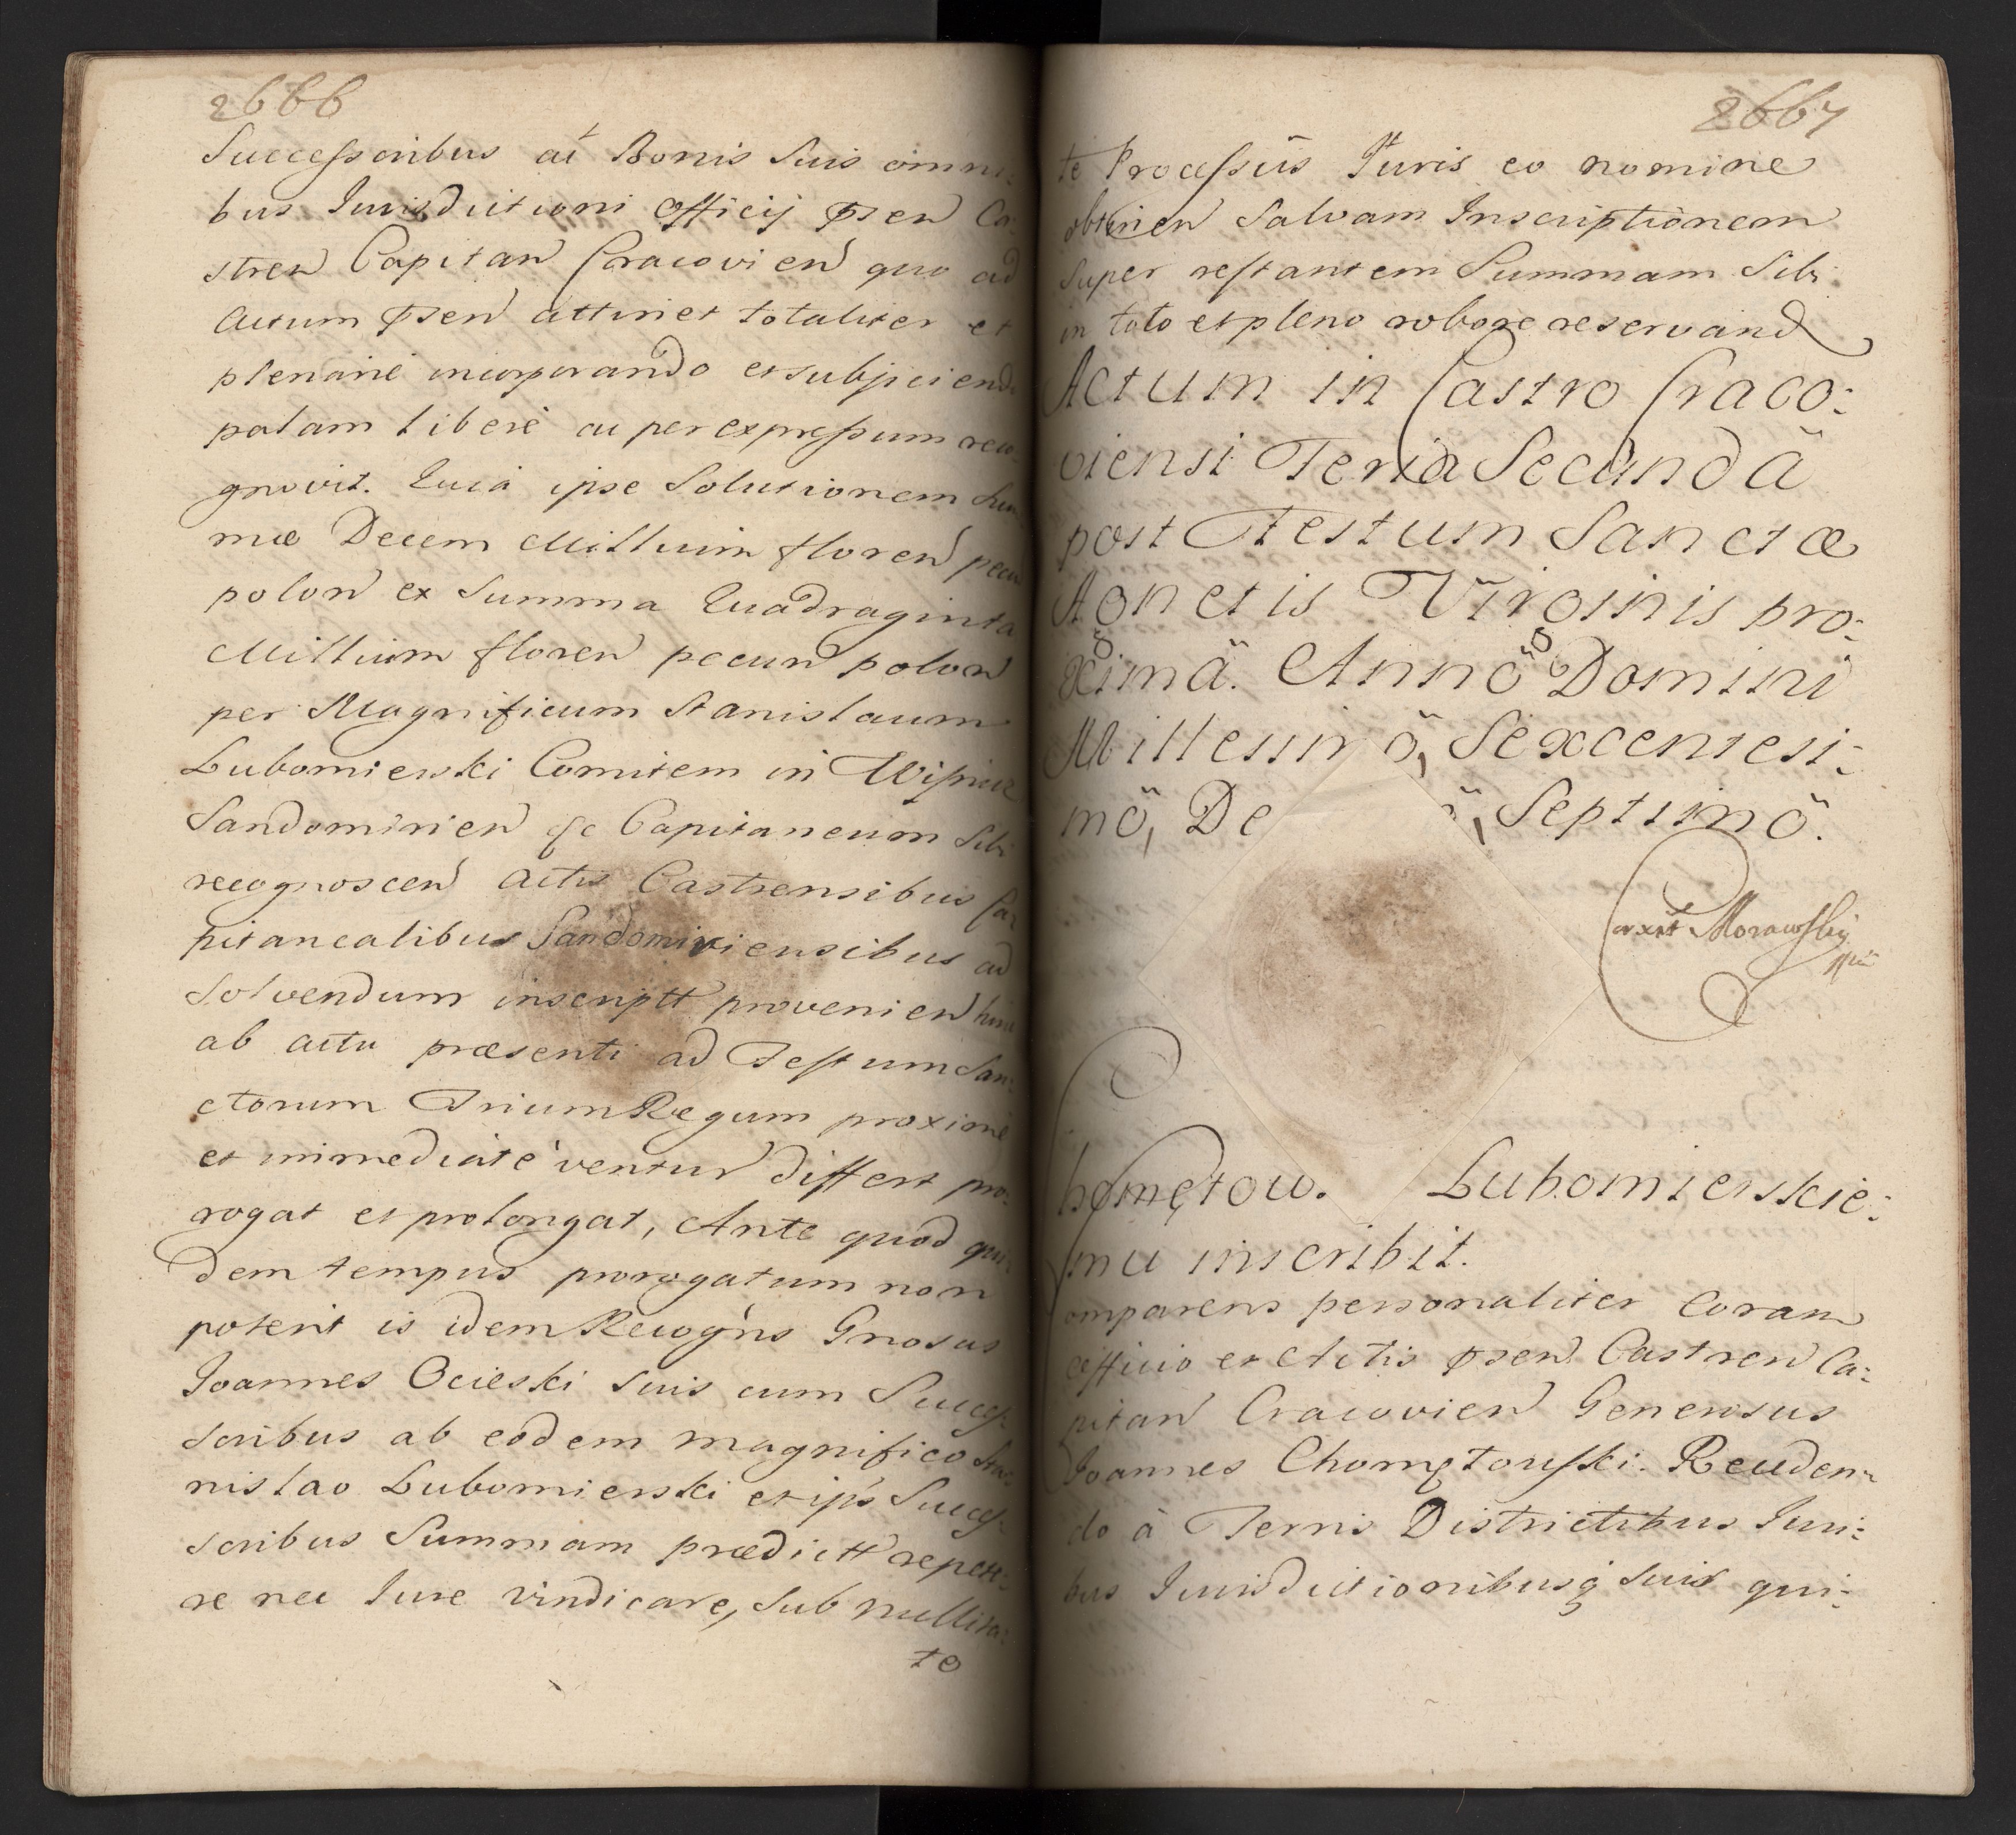 2666
Successoribus ac Bonis Suis omni:
bus Jurisdictioni Officij psen Ca:
stren Capitan Cracovien quo ad
Actum psen attinet totaliter et
plenarie incorporando et subjiciendo
palam libere ac per expressum reco:
gnovit. Quia ipse Solutionem Sum
mæ Decem Millium floren pecun
polon ex Summa Quadraginta
Millium floren pecun polon
per Magnificum Stanislaum
Lubomierski Comitem in Wisnicz
Sandomirien &c Capitaneum Sibi
recognoscen Actis Castrensibus Ca
pitanealibus Sandomiriensibus ad
Solvendum inscriptt provenien hinc
ab actu præsenti ad Festum San:
ctorum Trium Regum proxime
et immediate ventur differt pro:
rogat et prolongat, Ante quod qui:
dem tempus prorogatum non
poterit is idem Recogns Gnosus
Joannes Ocieski suis cum Succes
soribus ab eodem magnifico Sta:
nislao Lubomierski et ips Succes:
soribus Summam prædictt repete:
re nec Jure vindicare, Sub nullita:
te
2667
te Processus Juris eo nomine
obtinen Salvam Inscriptionem
Super restantem Summam Sibi
in toto et pleno robore reservand
Actum in Castro Craco:
viensi Feria Secunda
post Festum Sanctæ
Agnetis Virginis pro:
xima. Anno Domini
Millessimo, Sexcentesi:
mo, De o, Septimo.
Morawsky
mp
homętow. Lubomierskie:
mu inscribit.
omparens personaliter Coram
Officio et Actis psen Castren Ca:
pitan Cracovien Generosus
Joannes Chomętowski. Receden:
do à Terris Districtibus Juri:
bus Jurisdictionibusq suis qui: